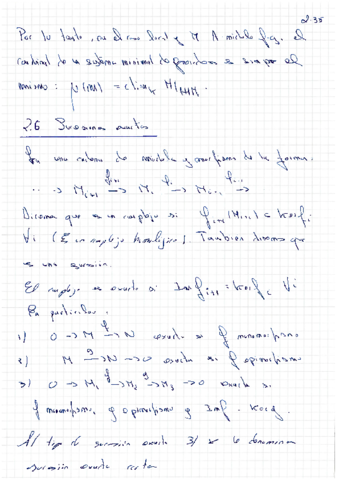 2-35
Por lo tanto, en el caso local y M A módulo f.g. el
cardinal de un sistema minimal de generadores es siempre el
mismo: μ(M) = dim_k M/𝔪M
2.6 Sucesiones exactas
En una cadena de módulos y morfismos de la forma.
... → M_{i+1} → M_i → M_{i-1} →
Diremos que es un complejo si f_{i+1}(M_{i+1}) ⊂ Ker f_i
∀i (Es un complejo homológico). También diremos que
es una sucesión.
El complejo es exacto si Im f_{i+1} = Ker f_i ∀i
En particular:
1) 0 → M →^f N exacta si f monomorfismo
2) M →^g N → 0 exacta si f epimorfismo
3) 0 → M_1 →^f M_2 →^g M_3 → 0 exacta si
f monomorfismo, g epimorfismo y Im f = Ker g.
Al tipo de sucesión exacta 3) se le denomina
sucesión exacta corta